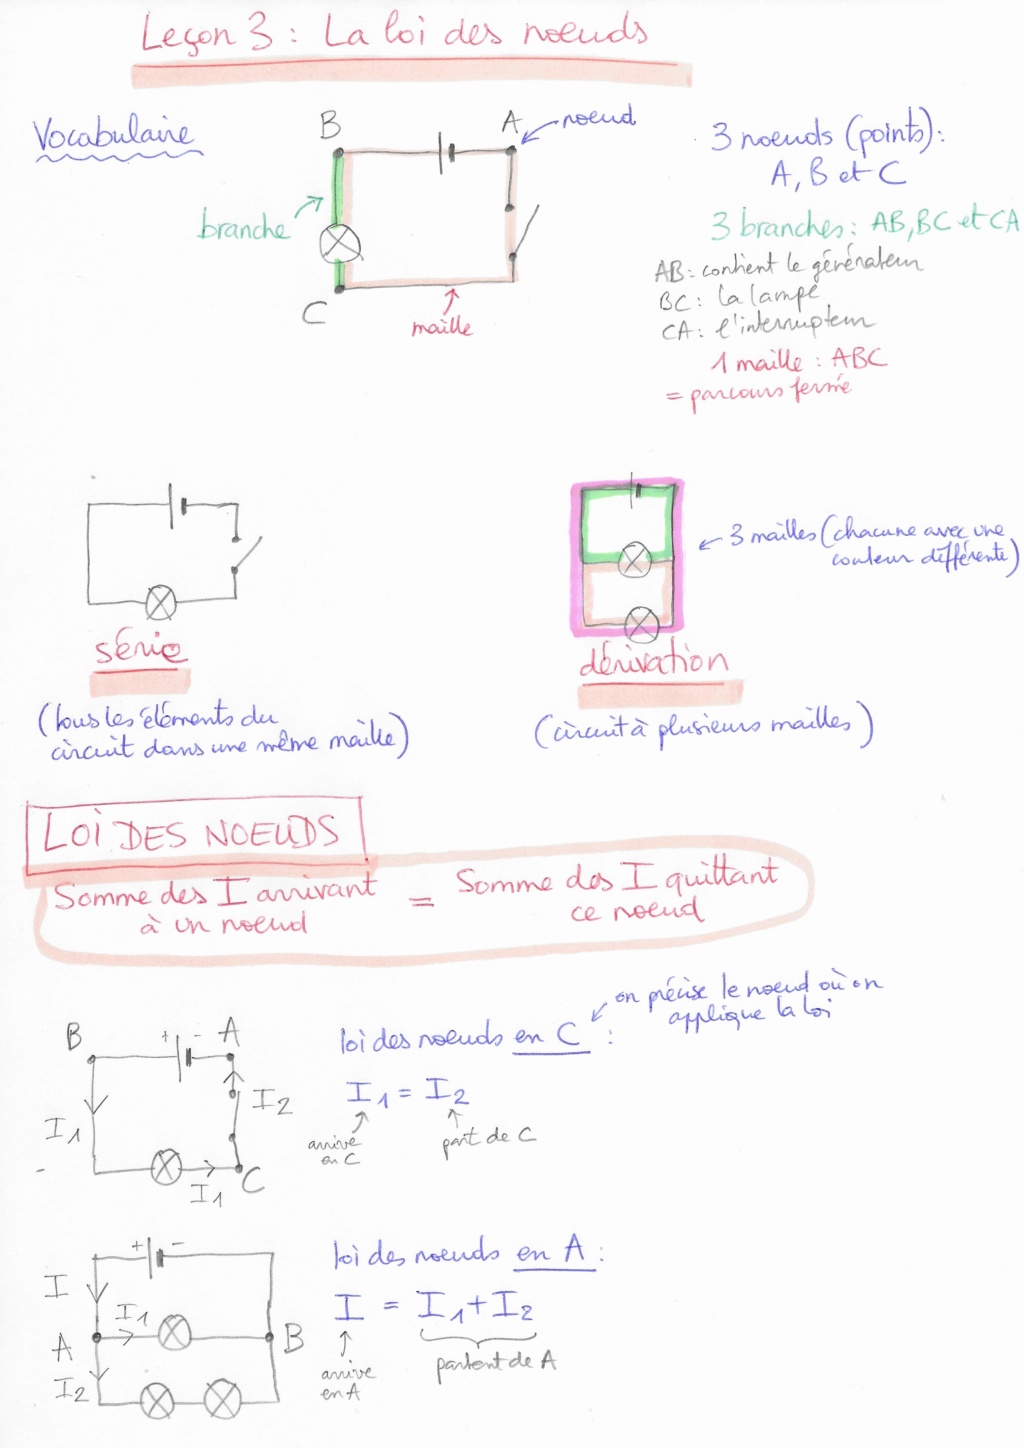 Leçon 3 : La loi des noeuds
Vocabulaire
B
A
noeud
branche
C
maille
3 noeuds (points) :
A, B et C
3 branches : AB, BC et CA
AB : contient le générateur
BC : la lampe
CA : l'interrupteur
1 maille : ABC
= parcours fermé
série
(tous les éléments du
circuit dans une même maille)
3 mailles (chacune avec une
couleur différente)
dérivation
(circuit à plusieurs mailles)
LOI DES NOEUDS
Somme des I arrivant
à un noeud
=
Somme des I quittant
ce noeud
B
+ -
A
I1
I2
I1
C
loi des noeuds en C :
on précise le noeud où on
applique la loi
I1 = I2
arrive
en C
part de C
+ -
I
I1
A
B
I2
loi des noeuds en A :
I = I1 + I2
arrive
en A
partent de A